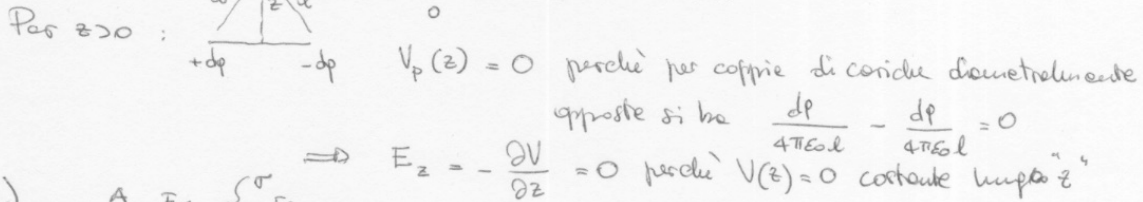 Per z>0 :
z
0
+dp -dp V_p(z) = 0 perchè per coppie di cariche diametralmente
opposte si ha dp/4πε₀l - dp/4πε₀l = 0
⇒ E_z = - ∂V/∂z = 0 perchè V(z)=0 costante lungo "z"